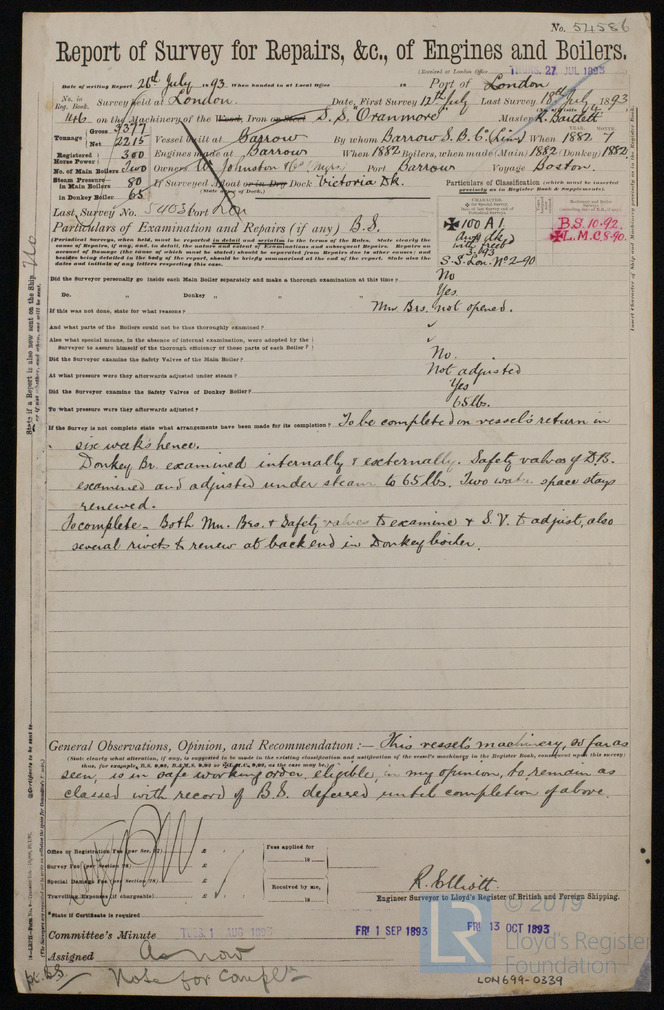 No. 54586
Report of Survey for Repairs, &c., of Engines and Boilers.
(Received at London Office THURS. 27 JUL 1893
Date of writing Report 26th July 1893 When handed in at Local Office 18 Port of London
No. in Reg. Book. Survey held at London. Date, First Survey 12th July Last Survey 18th July 1893
416 on the Machinery of the Wood, Iron or Steel S.S. "Oranmore" Master R. Bardett
Tonnage Gross 3377 Net 2215 Vessel built at Barrow By whom Barrow S.B. Co (Lim) When 1882 7
Registered Horse Power 300 Engines made at Barrow When 1882 Boilers, when made (Main) 1882 (Donkey) 1882
No. of Main Boilers Two Owners W. Johnston & Co Port Barrow Voyage Boston.
Steam Pressure in Main Boilers 80 If Surveyed Afloat or in Dry Dock Victoria Dk.
(State name of Dock.)
in Donkey Boiler 65
Particulars of Classification (which must be inserted precisely as in Register Book & Supplements).
Last Survey No. 5403 Port Lon
Particulars of Examination and Repairs (if any) B.S.
✠100 A1
S.S. Lon. No 2-90
B.S. 10.92
✠L.M.C. 8.90.
Did the Surveyor personally go inside each Main Boiler separately and make a thorough examination at this time? No
Do. Donkey " " " " Yes
If this was not done, state for what reasons? Mn Brs. not opened.
And what parts of the Boilers could not be thus thoroughly examined? ✓
Also what special means, in the absence of internal examination, were adopted by the Surveyor to assure himself of the thorough efficiency of those parts of each Boiler? ✓
Did the Surveyor examine the Safety Valves of the Main Boiler? No.
At what pressure were they afterwards adjusted under steam? Not adjusted
Did the Surveyor examine the Safety Valves of Donkey Boiler? Yes
To what pressure were they afterwards adjusted? 65 lbs.
If the Survey is not complete state what arrangements have been made for its completion? To be completed on vessel's return in
six weeks hence.
Donkey Br. examined internally & externally. Safety valves of D.B.
examined and adjusted under steam to 65 lbs. Two water space stays
renewed.
To complete - Both Mn. Brs. & Safety valves to examine & S.V. to adjust, also
several rivets to renew at back end in Donkey boiler.
General Observations, Opinion, and Recommendation :— This vessel's machinery, so far as
(State clearly what alteration, if any, is suggested to be made in the existing classification and notification of the vessel's machinery in the Register Book, consequent upon this survey;
seen, is in safe working order, eligible, in my opinion, to remain as
classed with record of B.S. deferred until completion of above.
Office or Registration Fee (per Sec. 27) £
Survey Fee (per Section 28) £
Special Damage Fee (per Section 28) £
Travelling Expenses (if chargeable) £
Fees applied for
18
Received by me,
18
R. Elliott.
Engineer Surveyor to Lloyd's Register of British and Foreign Shipping.
*State if Certificate is required
Committee's Minute TUES. 1 AUG 1893 FRI 1 SEP 1893 FRI 13 OCT 1893
Assigned As now
Note for Compln
© 2019
LR
Lloyd's Register
Foundation
LON699-0339
State if a Report is also now sent on the Ship. No